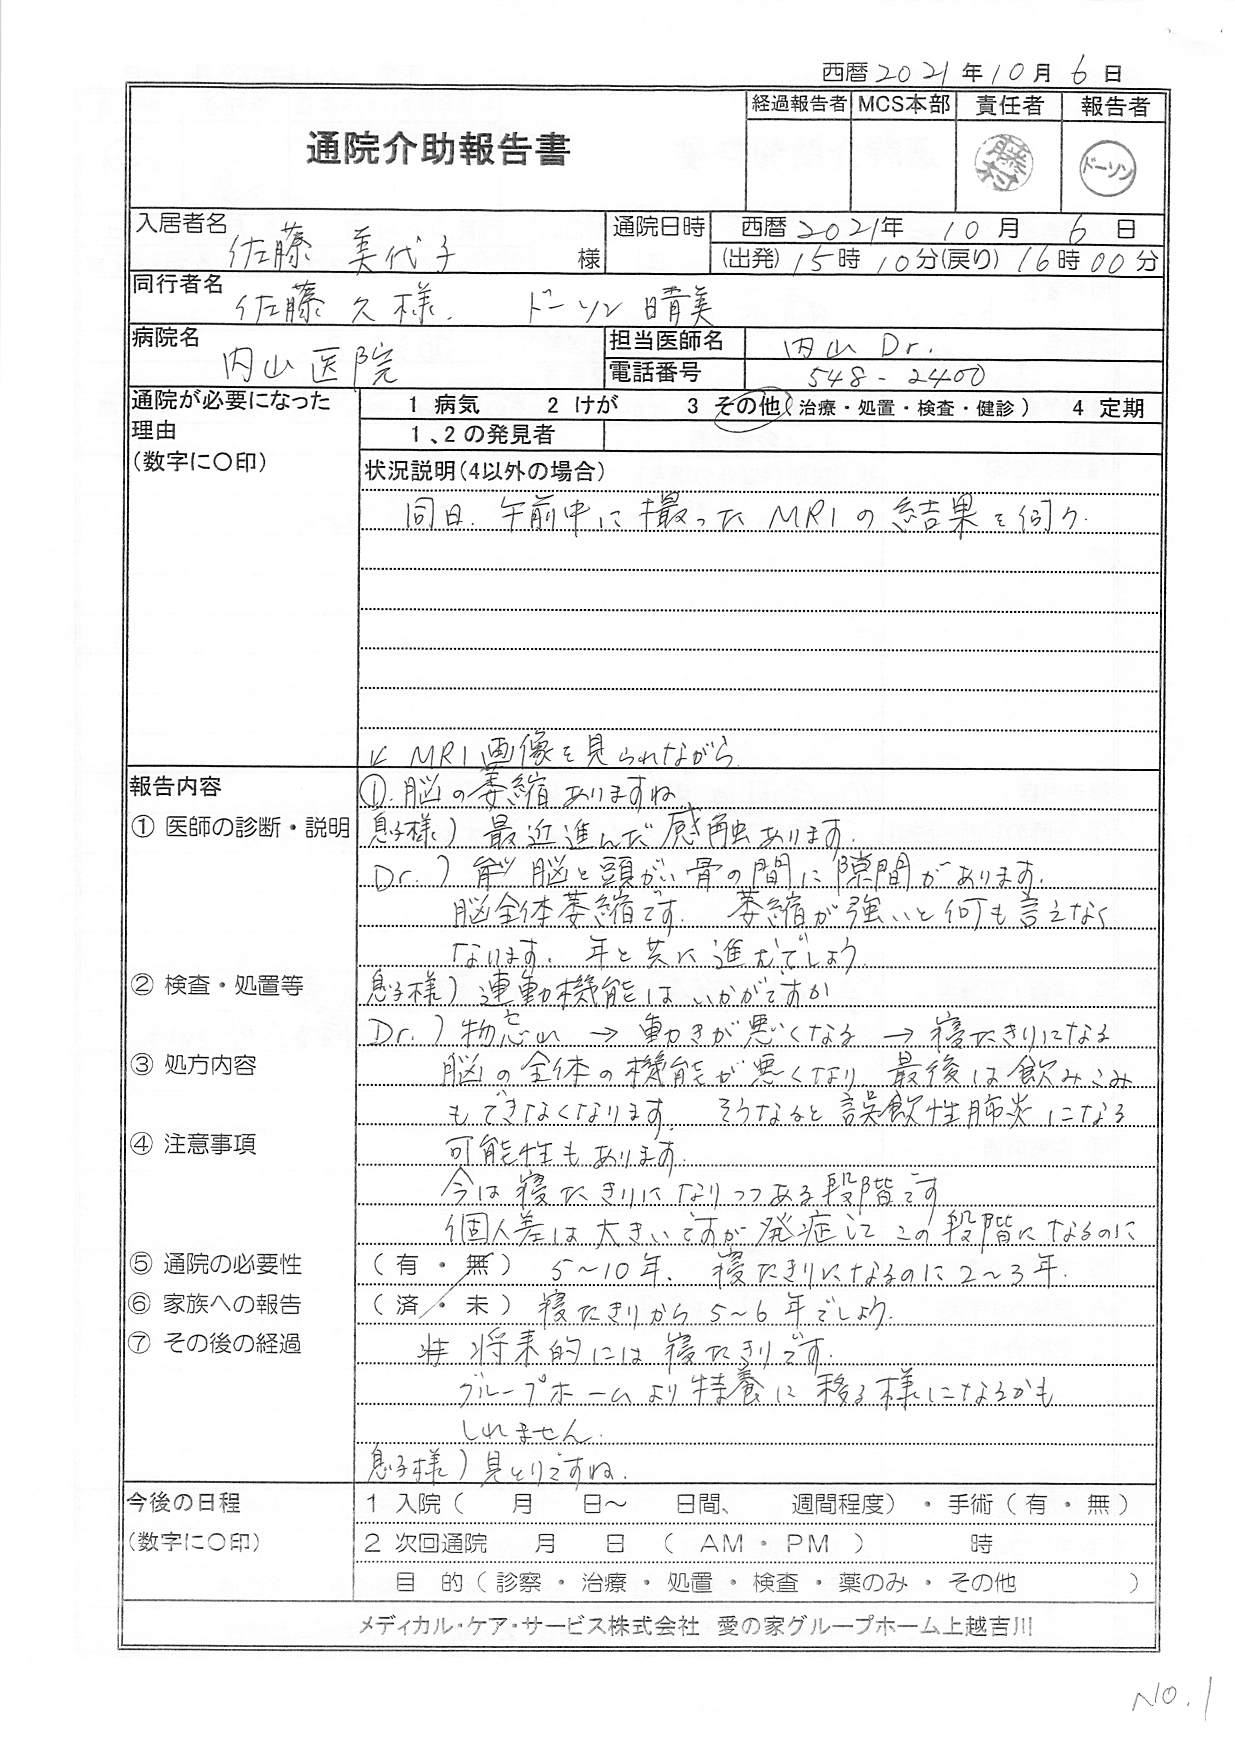 西暦2021年10月6日
通院介助報告書
経過報告者 MCS本部 責任者 報告者
藤村 ドーソン
入居者名 佐藤 美代子 様
通院日時 西暦2021年 10月 6日
(出発)15時10分(戻り)16時00分
同行者名 佐藤久様. ドーソン晴美
病院名 内山医院
担当医師名 内山Dr.
電話番号 548-2400
通院が必要になった理由
(数字に〇印)
1 病気 2 けが 3 その他(治療・処置・検査・健診) 4 定期
1、2の発見者
状況説明(4以外の場合)
同日.午前中に撮ったMRIの結果を伺う.
MRI画像を見られながら
報告内容
①.脳の萎縮ありますね
① 医師の診断・説明
息子様)最近進んだ感触あります.
Dr.)脳と頭がい骨の間に隙間があります.
脳全体萎縮です. 萎縮が強いと何も言えなく
なります.年と共に進むでしょう.
② 検査・処置等
息子様)運動機能はいかがですか
Dr.)物忘れ→動きが悪くなる→寝たきりになる
③ 処方内容
脳の全体の機能が悪くなり、最後は飲みこみ
もできなくなります. そうなると誤飲性肺炎になる
④ 注意事項
可能性もあります.
今は寝たきりになりつつある段階です
個人差は大きいですが発症してこの段階になるのに
⑤ 通院の必要性 (有・無) 5~10年、寝たきりになるのに2~3年.
⑥ 家族への報告 (済・未) 寝たきりから5~6年でしょう.
⑦ その後の経過
将来的には寝たきりです.
グループホームより特養に移る様になるかも
しれません.
息子様)見とりですね.
今後の日程
(数字に〇印)
1 入院( 月 日~ 日間、 週間程度)・手術(有・無)
2 次回通院 月 日 (AM・PM) 時
目 的(診察・治療・処置・検査・薬のみ・その他 )
メディカル・ケア・サービス株式会社 愛の家グループホーム上越吉川
NO.1